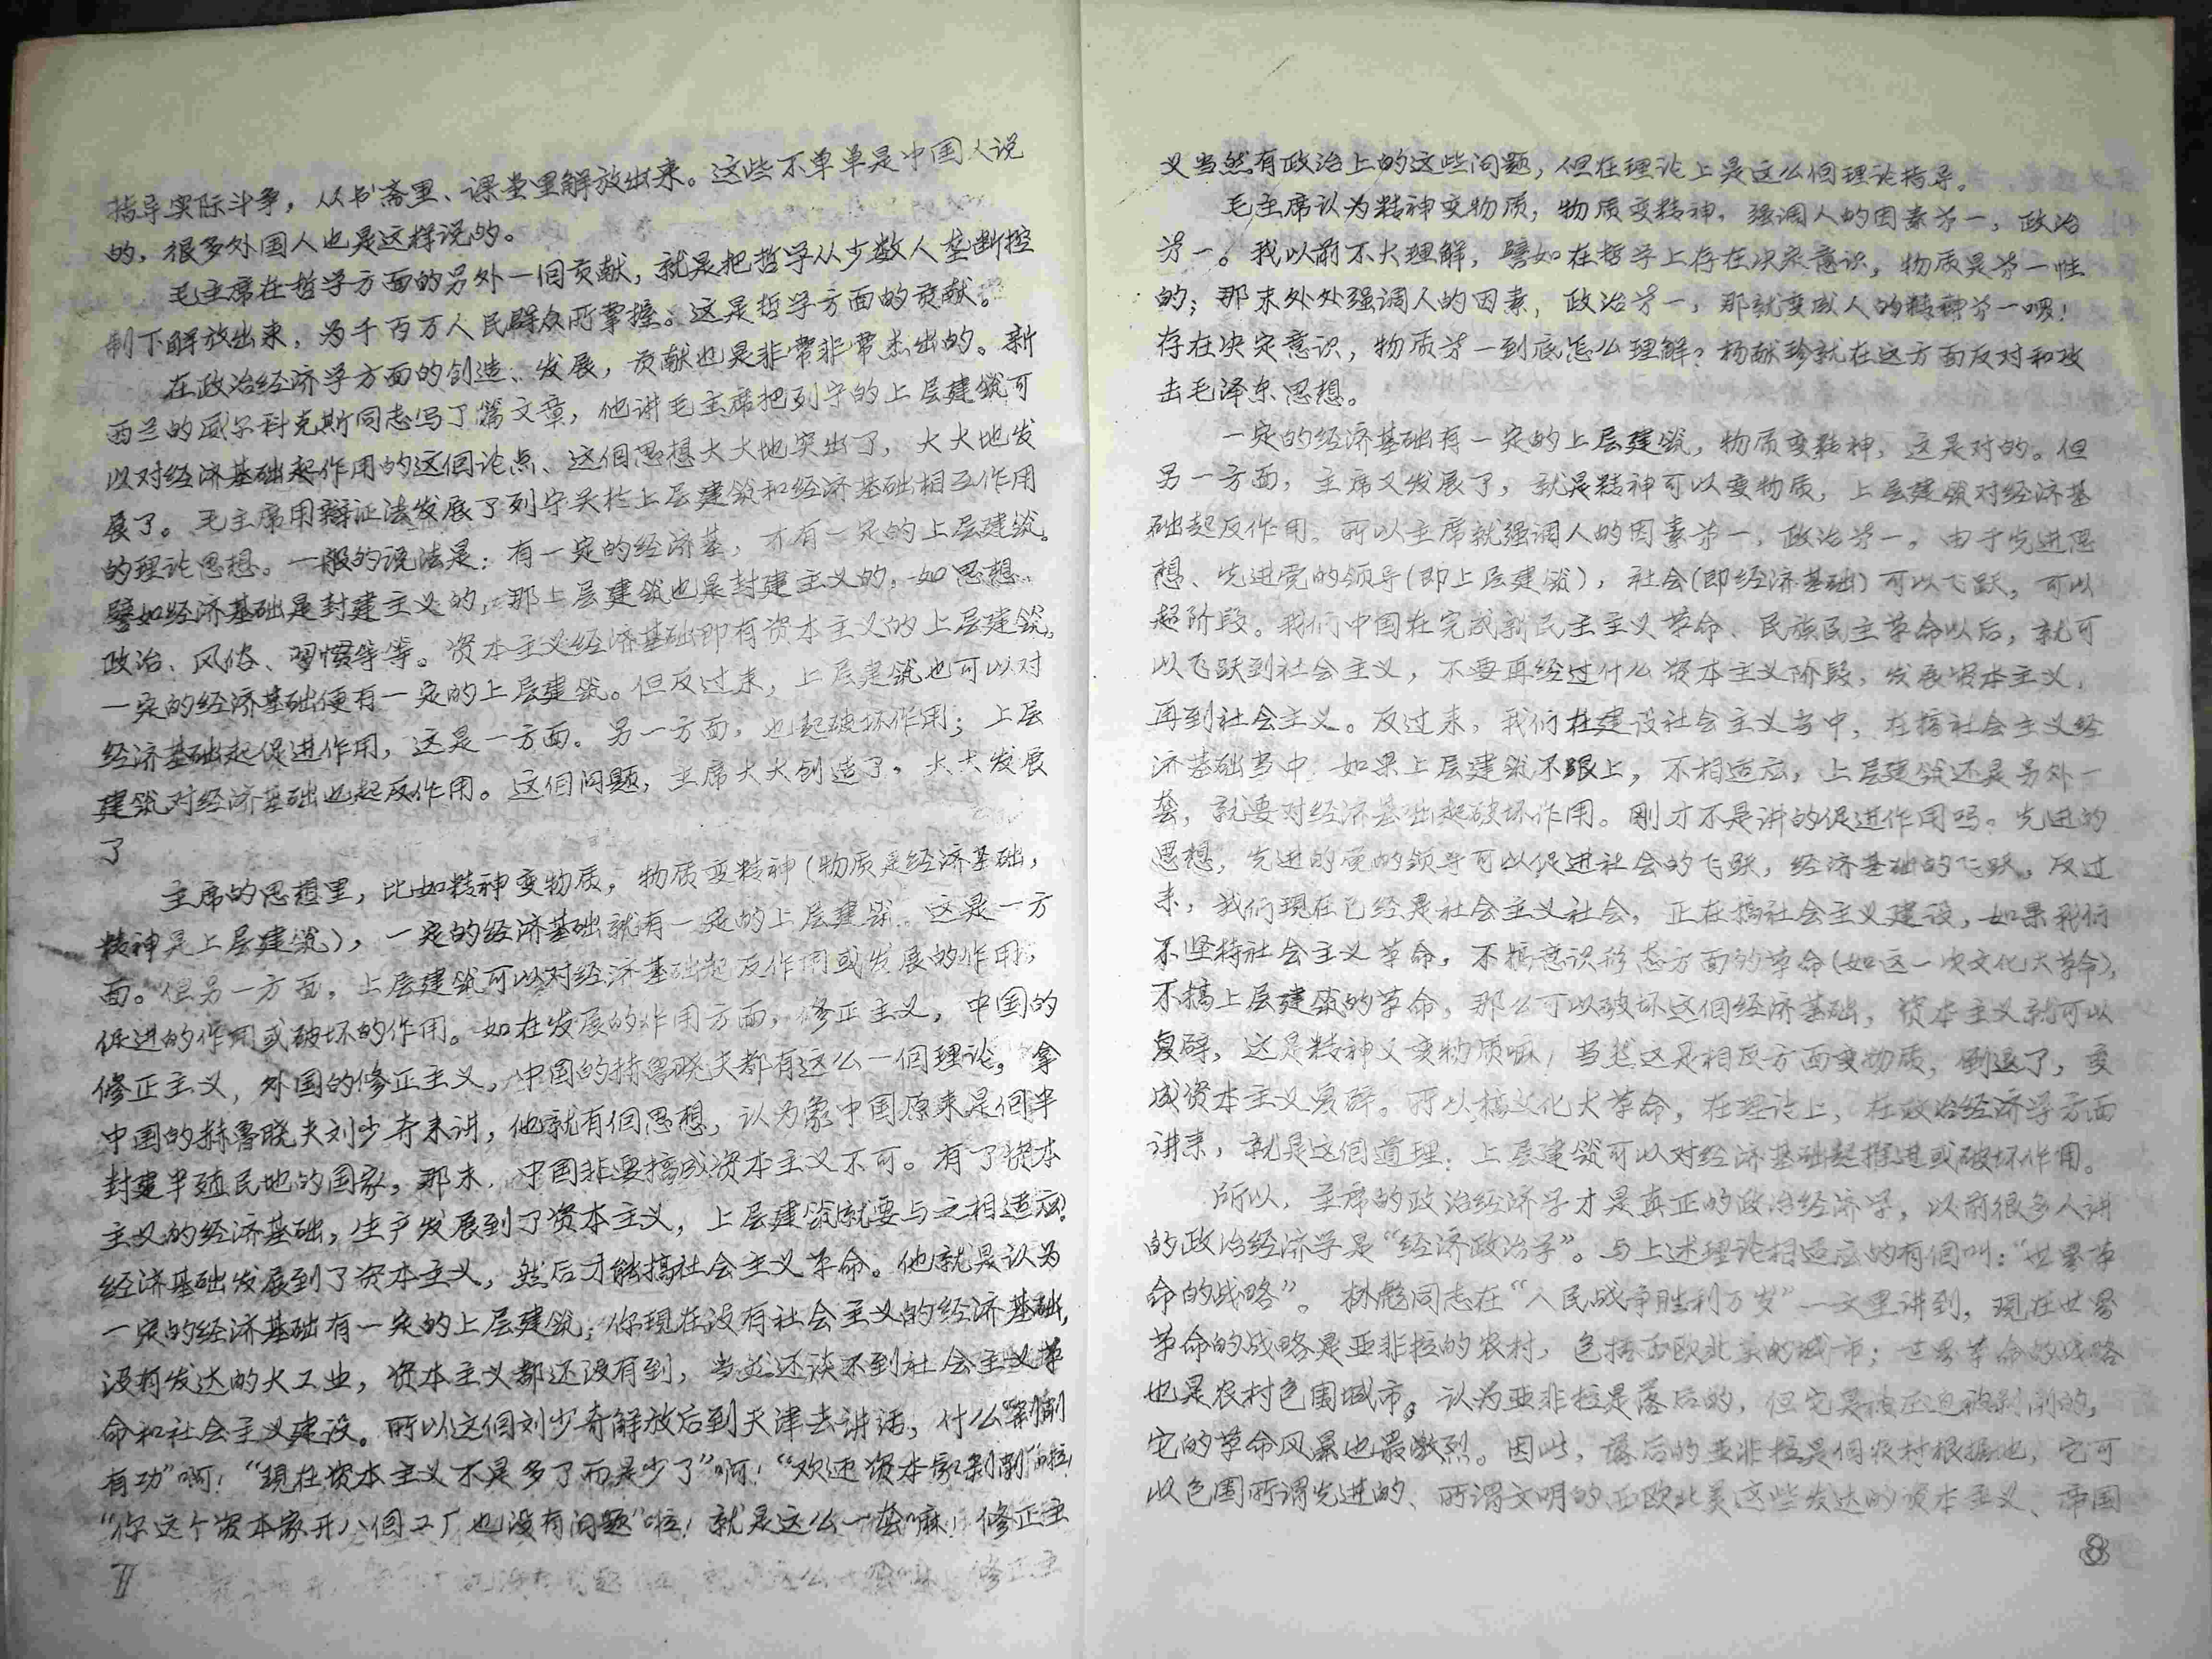 指导实际斗争，从书斋里、课堂里解放出来。这些不单单是中国人说
的，很多外国人也是这样说的。
毛主席在哲学方面的另外一個贡献，就是把哲学从少数人垄断控
制下解放出来，为千百万人民群众所掌握。这是哲学方面的贡献。
在政治经济学方面的创造、发展，贡献也是非常非常杰出的。新
西兰的威尔科克斯同志写了篇文章，他讲毛主席把列宁的上层建筑可
以对经济基础起作用的这個论点、这個思想大大地突出了，大大地发
展了。毛主席用辩证法发展了列宁关于上层建筑和经济基础相互作用
的理论思想。一般的说法是：有一定的经济基，才有一定的上层建筑。
譬如经济基础是封建主义的，那上层建筑也是封建主义的，如思想、
政治、风俗、習惯等等。资本主义经济基础即有资本主义的上层建筑。
一定的经济基础便有一定的上层建筑。但反过来，上层建筑也可以对
经济基础起促进作用，这是一方面。另一方面，也起破坏作用；上层
建筑对经济基础也起反作用。这個问题，主席大大创造了，大大发展
了
主席的思想里，比如精神变物质，物质变精神（物质是经济基础，
精神是上层建筑），一定的经济基础就有一定的上层建筑。这是一方
面。但另一方面，上层建筑可以对经济基础起反作用或发展的作用，
促进的作用或破坏的作用。如在发展的作用方面，修正主义，中国的
修正主义，外国的修正主义，中国的赫鲁晓夫都有这么一個理论，拿
中国的赫鲁晓夫刘少奇来讲，他就有個思想，认为象中国原来是個半
封建半殖民地的国家，那末，中国非要搞成资本主义不可。有了资本
主义的经济基础，生产发展到了资本主义，上层建筑就要与之相适应！
经济基础发展到了资本主义，然后才能搞社会主义革命。他就是认为
一定的经济基础有一定的上层建筑；你现在没有社会主义的经济基础，
没有发达的大工业，资本主义都还没有到，当然还谈不到社会主义革
命和社会主义建设。所以这個刘少奇解放后到天津去讲话，什么“剥削
有功”啊！“现在资本主义不是多了而是少了”啊！“欢迎资本家剥削”啦！
“你这个资本家开八個工厂也没有问题”啦！就是这么一套嘛！修正主
义当然有政治上的这些问题，但在理论上是这么個理论指导。
毛主席认为精神变物质，物质变精神，强调人的因素㐧一，政治
㐧一。我以前不大理解，譬如在哲学上存在决定意识，物质是㐧一性
的；那末处处强调人的因素，政治㐧一，那就变成人的精神㐧一啰！
存在决定意识，物质㐧一到底怎么理解？杨献珍就在这方面反对和攻
击毛泽东思想。
一定的经济基础有一定的上层建筑，物质变精神，这是对的。但
另一方面，主席又发展了，就是精神可以变物质，上层建筑对经济基
础起反作用。所以主席就强调人的因素㐧一，政治㐧一。由于先进思
想、先进党的领导（即上层建筑），社会（即经济基础）可以飞跃，可以
超阶段。我们中国在完成新民主主义革命、民族民主革命以后，就可
以飞跃到社会主义，不要再经过什么资本主义阶段，发展资本主义，
再到社会主义。反过来，我们在建设社会主义当中，在搞社会主义经
济基础当中，如果上层建筑不跟上，不相适应，上层建筑还是另外一
套，就要对经济基础起破坏作用。刚才不是讲的促进作用吗。先进的
思想，先进的党的领导可以促进社会的飞跃，经济基础的飞跃。反过
来，我们现在已经是社会主义社会，正在搞社会主义建设，如果我们
不坚持社会主义革命，不搞意识形态方面的革命（如这一次文化大革命），
不搞上层建筑的革命，那么可以破坏这個经济基础，资本主义就可以
复辟，这是精神又变物质嘛，当然这是相反方面变物质，倒退了，变
成资本主义复辟。所以搞文化大革命，在理论上，在政治经济学方面
讲来，就是这個道理：上层建筑可以对经济基础起推进或破坏作用。
所以，主席的政治经济学才是真正的政治经济学，以前很多人讲
的政治经济学是“经济政治学”。与上述理论相适应的有個叫：“世界革
命的战略”。林彪同志在“人民战争胜利万岁”一文里讲到，现在世界
革命的战略是亚非拉的农村，包括西欧北美的城市；世界革命的战略
也是农村包围城市。认为亚非拉是落后的，但它是被压迫被剥削的，
它的革命风暴也最激烈。因此，落后的亚非拉是個农村根据地，它可
以包围所谓先进的、所谓文明的西欧北美这些发达的资本主义、帝国
8